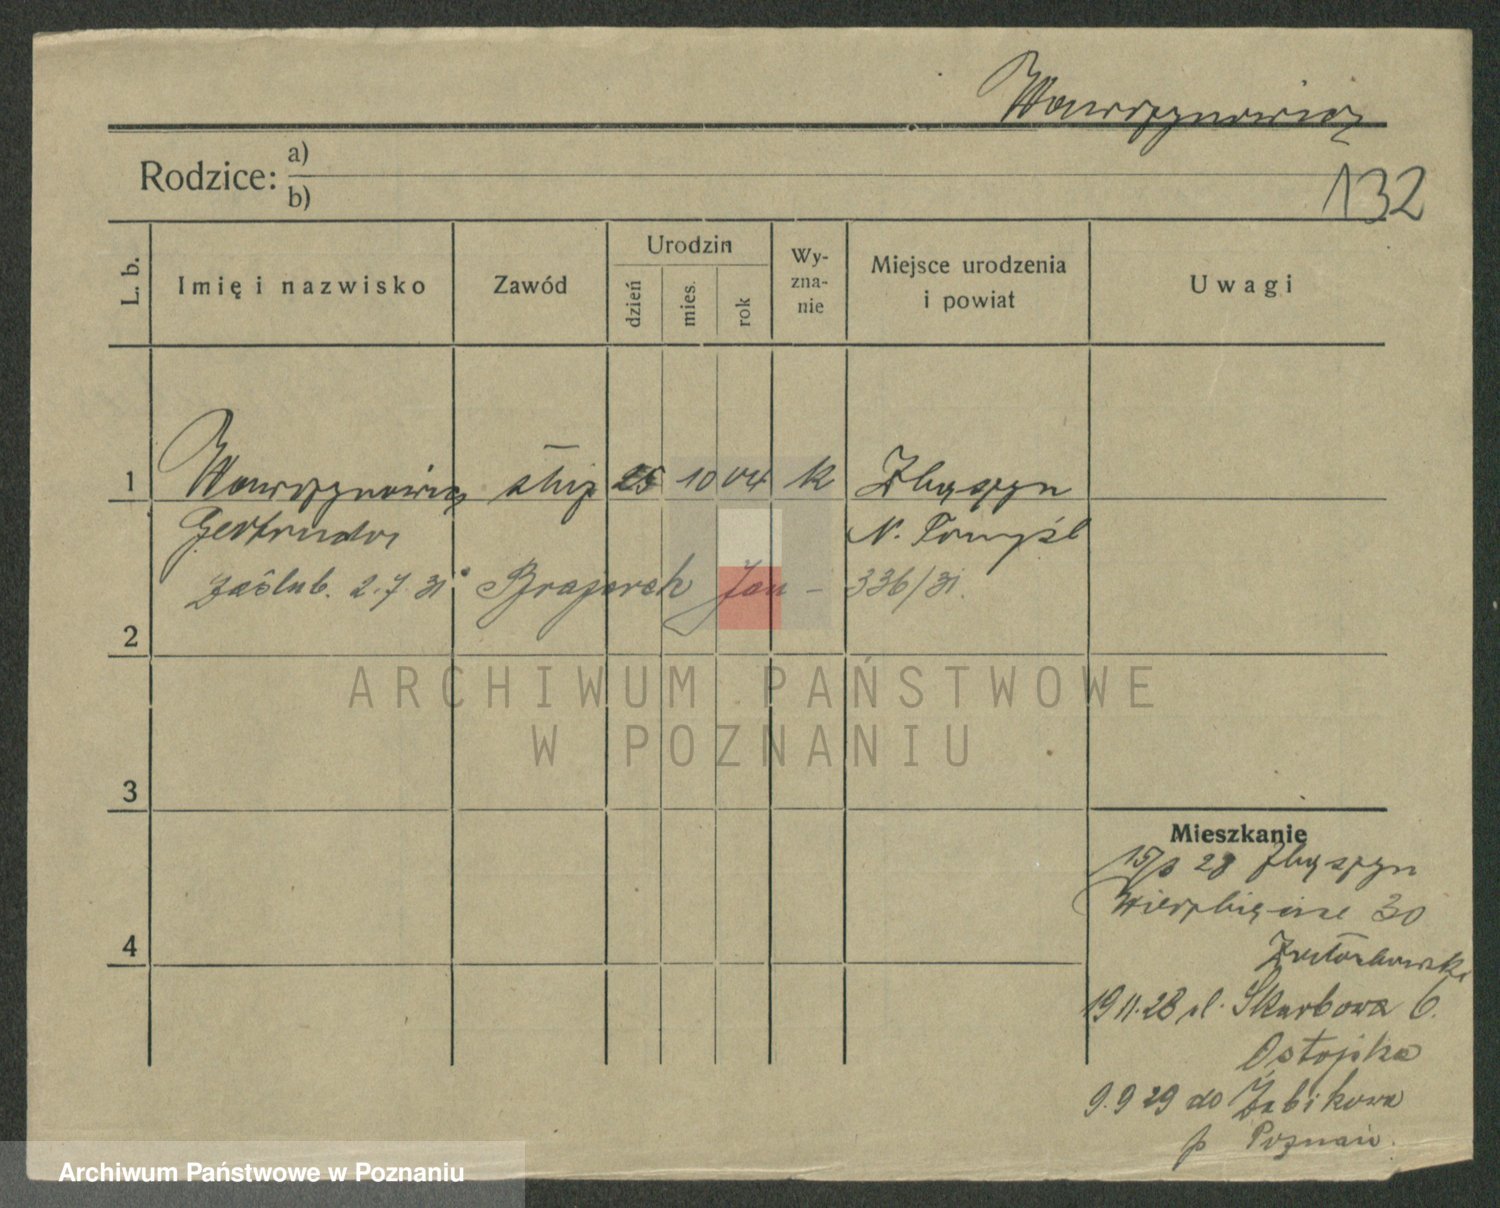 Wawrzynowicz
Rodzice: a)
b)
132
L. b.
Imię i nazwisko
Zawód
Urodzin
dzień
mies.
rok
Wy-
zna-
nie
Miejsce urodzenia
i powiat
Uwagi
1 Wawrzynowicz służ 25 10 04 k Zbąszyn
Gertruda N. Tomyśl
zaślub. 2.7.31 Jan - 336/31.
2
ARCHIWUM PAŃSTWOWE
W POZNANIU
3
Mieszkanie
28 Zbąszyn
Wierzbięcice 30
4
19.11.28 ul. Skarbowa 6.
Ostojska
9.9.29 do Żabikowa
p Poznań.
Archiwum Państwowe w Poznaniu